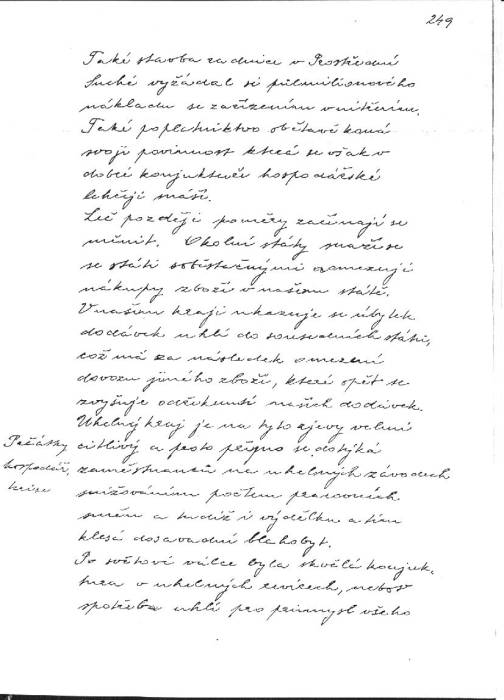 249
Také stavba radnice v Prostřední
Suché vyžádal si půlmilionového
nákladu se zařízením vnitřním.
Také poplatnictvo obětavě koná
svoji povinnost která se však v
dobré konjunktuře hospodářské
lehčeji snáší.
Leč později poměry začínají se
měnit. Okolní státy snaží se
se státi soběstačnými a omezují
nákupy zboží v našem státě.
V našem kraji ukazuje se úbytek
dodávek uhlí do sousedních států,
což má za následek omezení
dovozu jiného zboží, které opět se
zvyšuje našich dodávek.
Uhelný kraj je na tyto zjevy velmi
citlivý a proto přímo se dotýká
zaměstnanců na uhelných závodech
snižováním počtem pracovních
směn a tudíž i výdělku a tím
klesá dosavadní blahobyt.
Počátky
hospodář.
krize
Po světové válce byla skvělá konjuk-
tura v uhelných revírech, neboť
spotřeba uhlí pro průmysl všeho